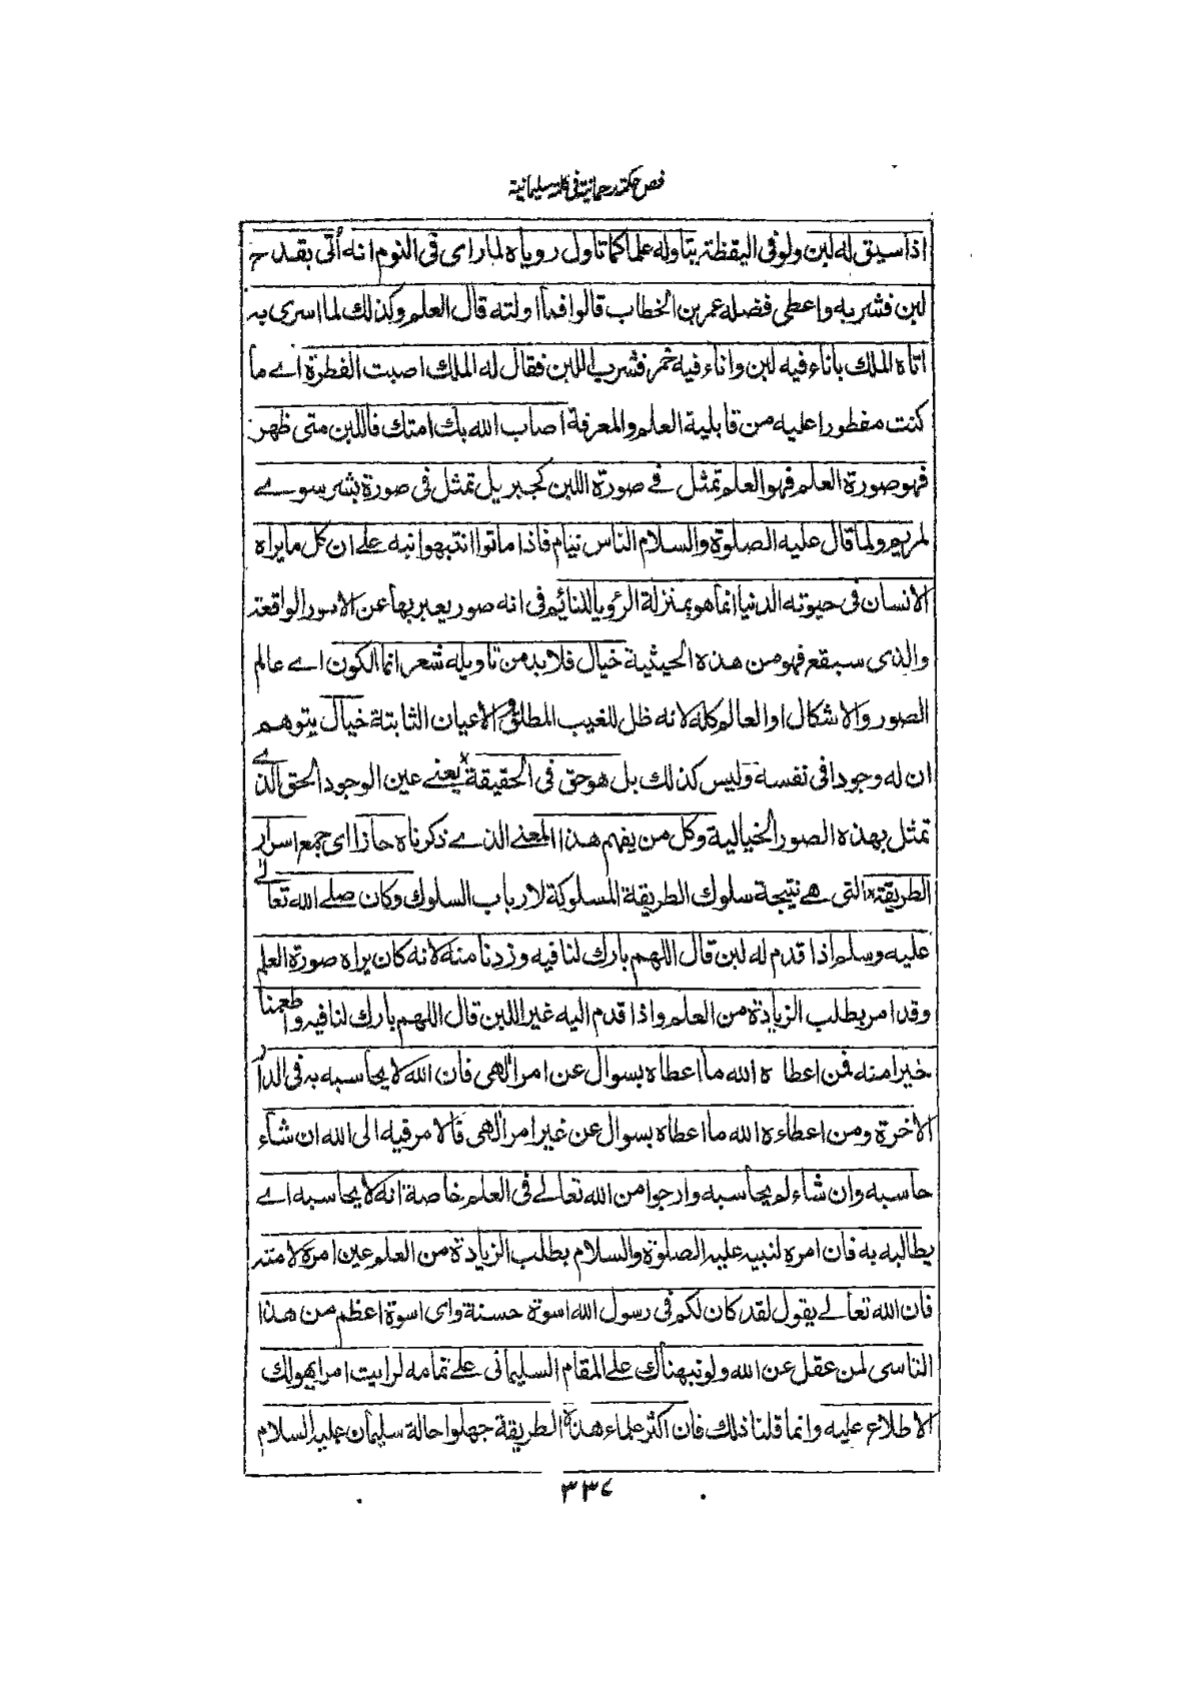 فص حكمة رحمانية فى كلمة سليمانية
اذا سيق له لبن ولو فى اليقظة يتاوله علما كما تاول روياه لما راى فى النوم انه أتى بقدح
لبن فشربه واعطى فضله عمر بن الخطاب قالوا فما اولته قال العلم وكذلك لما اسرى به
اتاه الملك باناء فيه لبن واناء فيه خمر فشرب اللبن فقال له الملك اصبت الفطرة اے ما
كنت مفطورا عليه من قابلية العلم والمعرفة اصاب الله بك امتك فاللبن متى ظهر
فهو صورة العلم فهو العلم تمثل فے صورة اللبن كجبريل تمثل فى صورة بشر سوے
لمريم ولما قال عليه الصلوة والسلام الناس نيام فاذا ماتوا انتبهوا نبه علے ان كل ما يراه
الانسان فى حيوته الدنيا انما هو بمنزلة الرؤيا للنائم فى انه صور يعبر بها عن الامور الواقعة
والذى سيقع فهو من هذه الحيثية خيال فلا بد من تاويله شعر انما الكون اے عالم
الصور والاشكال او العالم كله لانه ظل للغيب المطلق والاعيان الثابتة خيال يتوهم
ان له وجودا فى نفسه وليس كذلك بل هو حق فى الحقيقة يعنے عين الوجود الحق الذے
تمثل بهذه الصور الخيالية وكل من يفهم هذا المعنے الذے ذكرناه حاز اى جمع اسرار
الطريقة التى هے نتيجة سلوك الطريقة المسلوكة لارباب السلوك وكان صلے الله تعالے
عليه وسلم اذا قدم له لبن قال اللهم بارك لنا فيه وزدنا منه لانه كان يراه صورة العلم
وقد امر بطلب الزيادة من العلم واذا قدم اليه غير اللبن قال اللهم بارك لنا فيه واطعمنا
خيرا منه فمن اعطا ه الله ما اعطاه بسوال عن امر الهى فان الله لا يحاسبه به فى الدار
الاخرة ومن اعطاءه الله ما اعطاه بسوال عن غير امر الهى فالامر فيه الى الله ان شاء
حاسبه وان شاء لم يحاسبه وارجوا من الله تعالے فى العلم خاصة انه لا يحاسبه اے
يطالبه به فان امره لنبيه عليه الصلوة والسلام بطلب الزيادة من العلم عين امره لامته
فان الله تعالے يقول لقد كان لكم فى رسول الله اسوة حسنة واى اسوة اعظم من هذا
التاسى لمن عقل عن الله ولو نبهناك علے المقام السليمانى علے تمامه لرايت امرا يهولك
الاطلاع عليه وانما قلنا ذلك فان اكثر علماء هذه الطريقة جهلوا حالة سليمان عليه السلام
٣٣٤